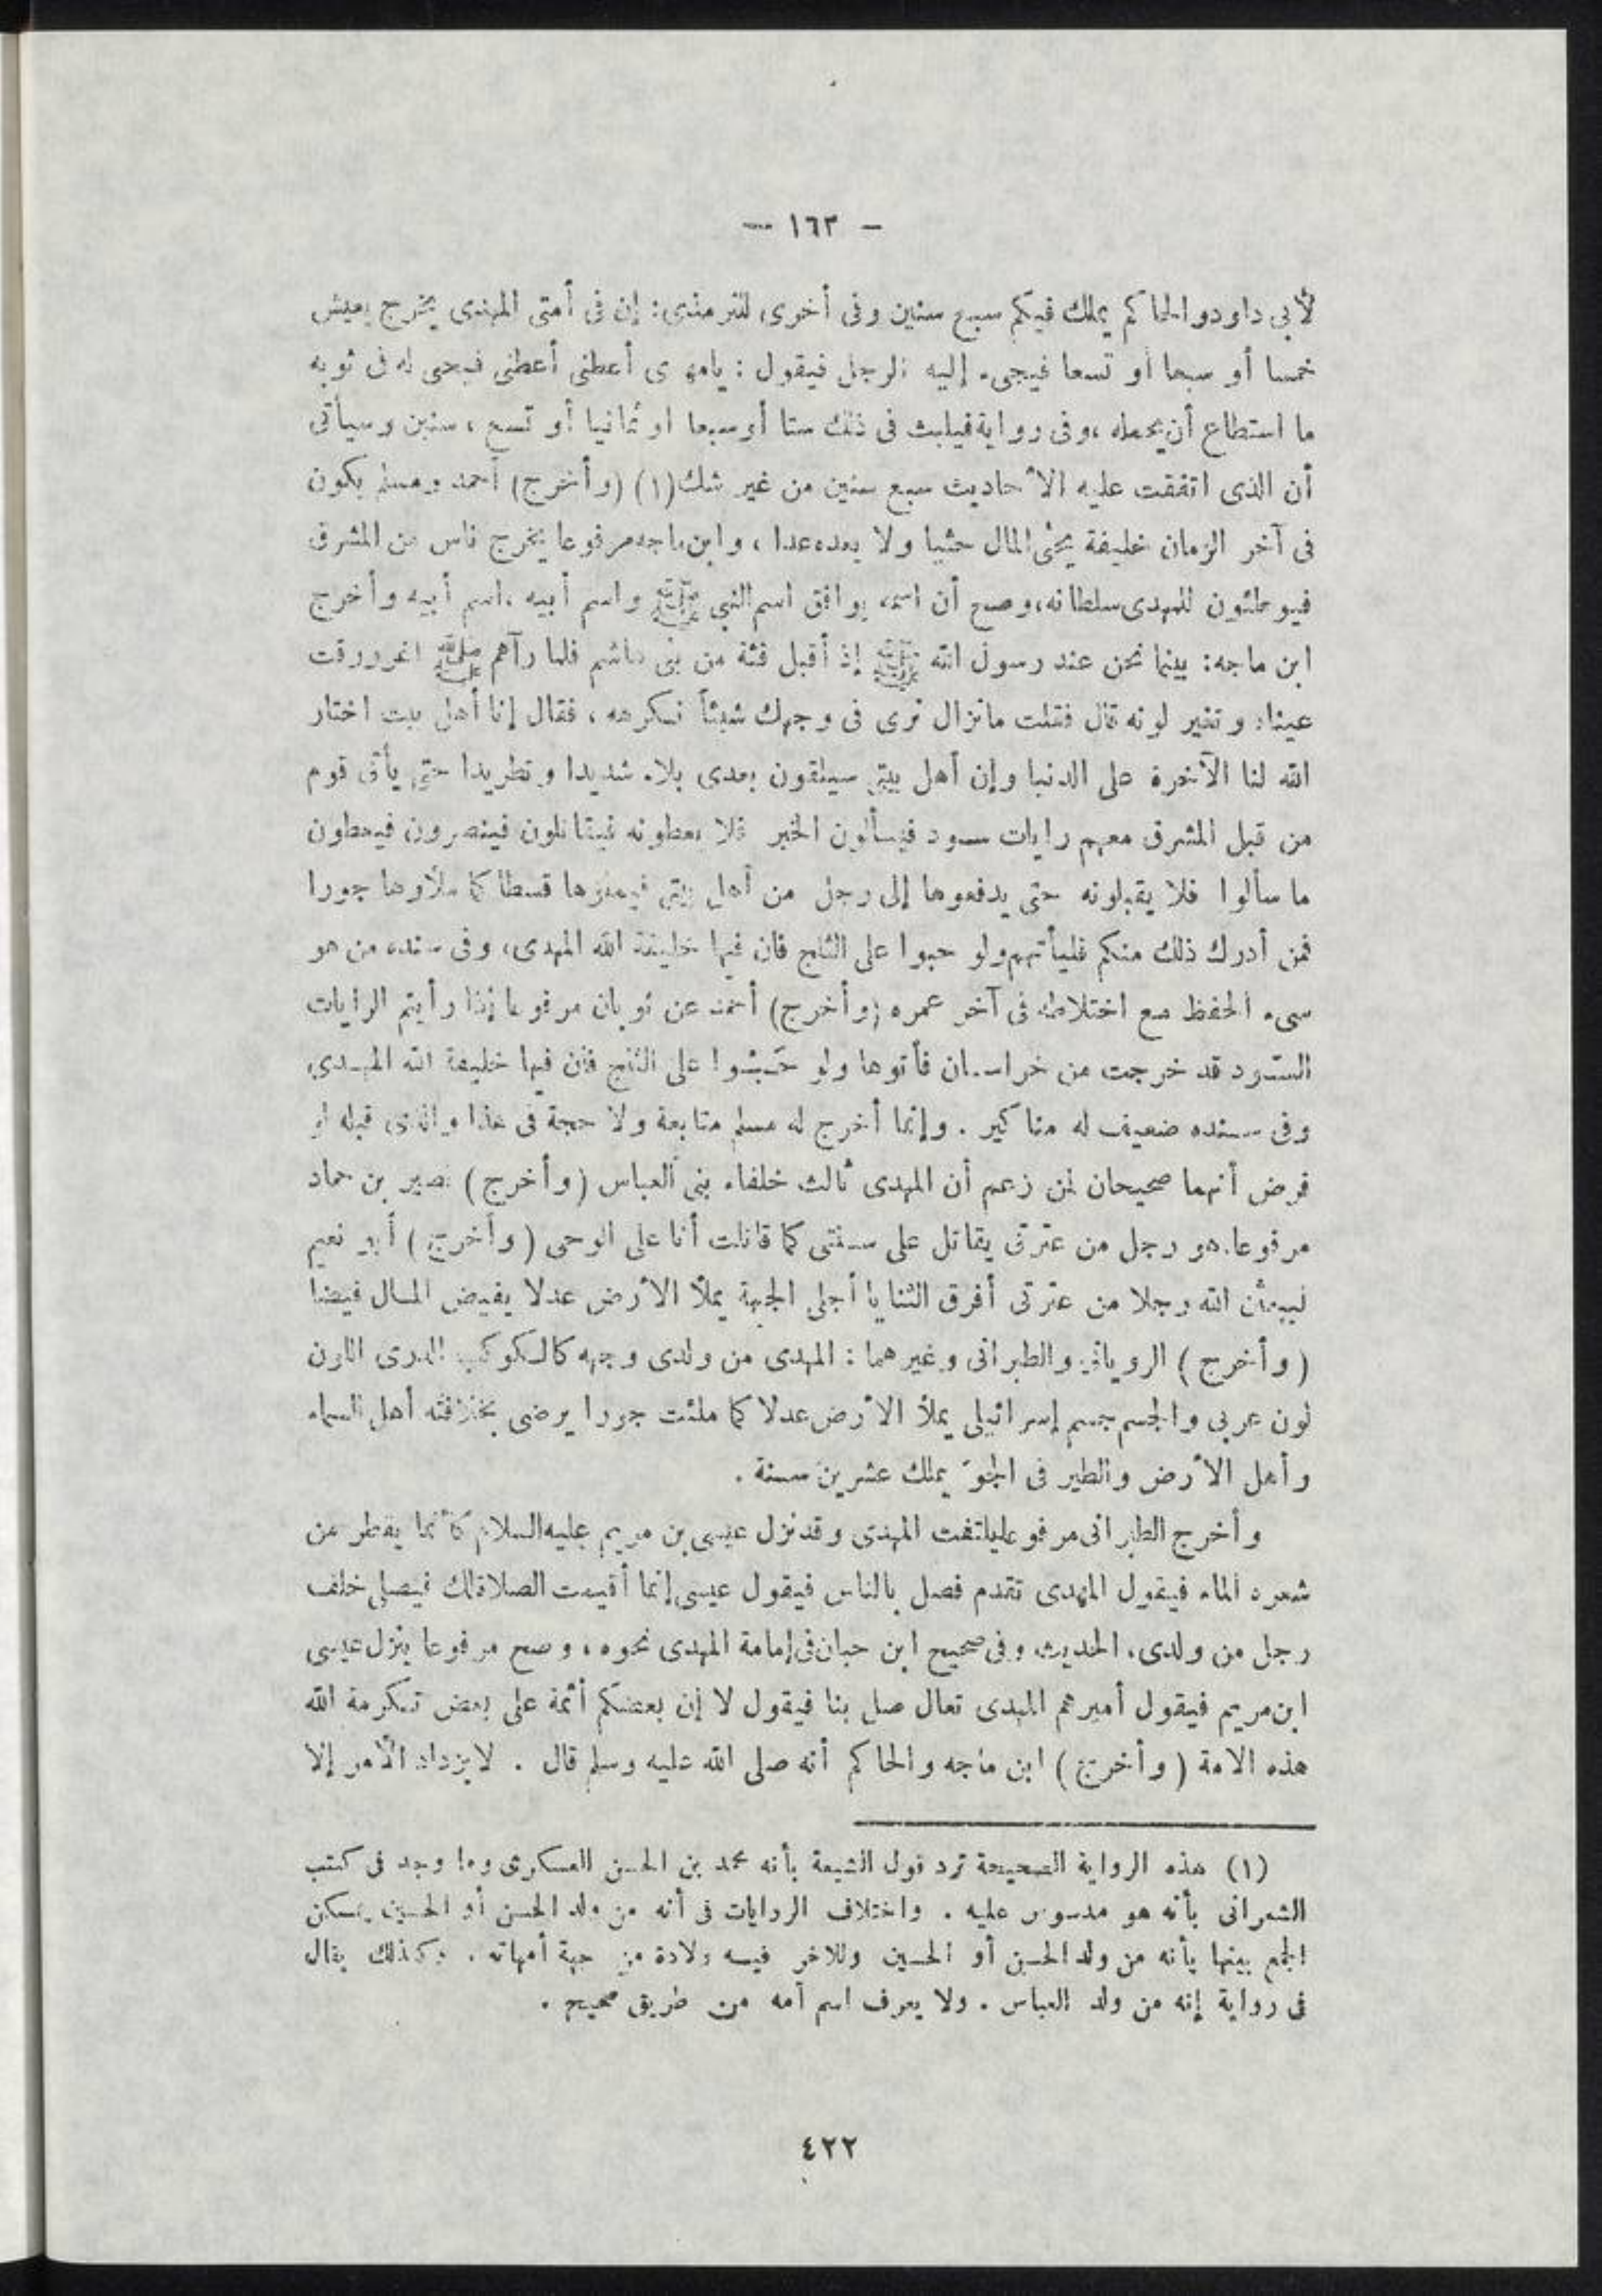 — ١٦٣ —
لأبى داود والحاكم يملك فيكم سبع سنين وفى أخرى للترمذى: إن فى أمتى المهدى يخرج يعيش
خمسا أو سبعا أو تسعا فيجىء إليه الرجل فيقول : يامهدى أعطنى أعطنى فيحثى له فى ثوبه
ما استطاع أن يحمله ، وفى رواية فيلبث فى ذلك ستا أو سبعا أو ثمانيا أو تسع سنين وسيأتى
أن الذى اتفقت عليه الأحاديث سبع سنين من غير شك (١) (وأخرج) أحمد ومسلم يكون
فى آخر الزمان خليفة يحثى المال حثيا ولا يعده عدا ، وابن ماجه مرفوعا يخرج ناس من المشرق
فيوطئون للمهدى سلطانه، وصح أن اسمه يوافق اسم النبى ﷺ واسم أبيه اسم أبيه وأخرج
ابن ماجه: بينما نحن عند رسول الله ﷺ إذ أقبل فئة من بنى هاشم فلما رآهم ﷺ اغرورقت
عيناه وتغير لونه قال فقلت مانزال نرى فى وجهك شيئاً نكرهه ، فقال إنا أهل بيت اختار
الله لنا الآخرة على الدنيا وإن أهل بيتى سيلقون بعدى بلاء شديدا وتطريدا حتى يأتى قوم
من قبل المشرق معهم رايات سود فيسألون الخير فلا يعطونه فيقاتلون فينصرون فيعطون
ما سألوا فلا يقبلونه حتى يدفعوها إلى رجل من أهل بيتى فيملؤها قسطا كما ملأوها جورا
فمن أدرك ذلك منكم فليأتهم ولو حبوا على الثلج فان فيها خليفة الله المهدى، وفى سنده من هو
سىء الحفظ مع اختلاطه فى آخر عمره (وأخرج) أحمد عن ثوبان مرفوعا إذا رأيتم الرايات
السّود قد خرجت من خراسان فأتوها ولو حَبْوا على الثلج فان فيها خليفة الله المهدى،
وفى سنده ضعيف له مناكير . وإنما أخرج له مسلم متابعة ولا حجة فى هذا والذى قبله لو
فرض أنهما صحيحان لمن زعم أن المهدى ثالث خلفاء بنى العباس (وأخرج) نصير بن حماد
مرفوعا. هو رجل من عترتى يقاتل على سنتى كما قاتلت أنا على الوحى (وأخرج) أبو نعيم
ليبعثن الله رجلا من عترتى أفرق الثنايا أجلى الجبهة يملأ الأرض عدلا يفيض المال فيضا
(وأخرج) الرويانى والطبرانى وغيرهما : المهدى من ولدى وجهه كالكوكب الدرى اللون
لون عربى والجسم جسم إسرائيلى يملأ الأرض عدلا كما ملئت جورا يرضى بخلافته أهل السماء
وأهل الأرض والطير فى الجوّ يملك عشرين سنة .
وأخرج الطبرانى مرفوعا يلتفت المهدى وقد نزل عيسى بن مريم عليه السلام كأنما يقطر من
شعره الماء فيقول المهدى تقدم فصل بالناس فيقول عيسى إنما أقيمت الصلاة لك فيصلى خلف
رجل من ولدى. الحديث وفى صحيح ابن حبان فى إمامة المهدى نحوه ، وصح مرفوعا ينزل عيسى
ابن مريم فيقول أميرهم المهدى تعال صل بنا فيقول لا إن بعضكم أئمة على بعض تكرمة الله
هذه الامة (وأخرج) ابن ماجه والحاكم أنه صلى الله عليه وسلم قال . لا يزداد الأمر إلا
(١) هذه الرواية الصحيحة ترد قول الشيعة بأنه محمد بن الحسن العسكرى وما وجد فى كتب
الشعرانى بأنه هو مدسوس عليه . واختلاف الروايات فى أنه من ولد الحسن أو الحسين يمكن
الجمع بينها بأنه من ولد الحسن أو الحسين وللآخر فيه ولادة من جهة أمهاته . وكذلك يقال
فى رواية إنه من ولد العباس . ولا يعرف اسم أمه من طريق صحيح .
٤٢٢